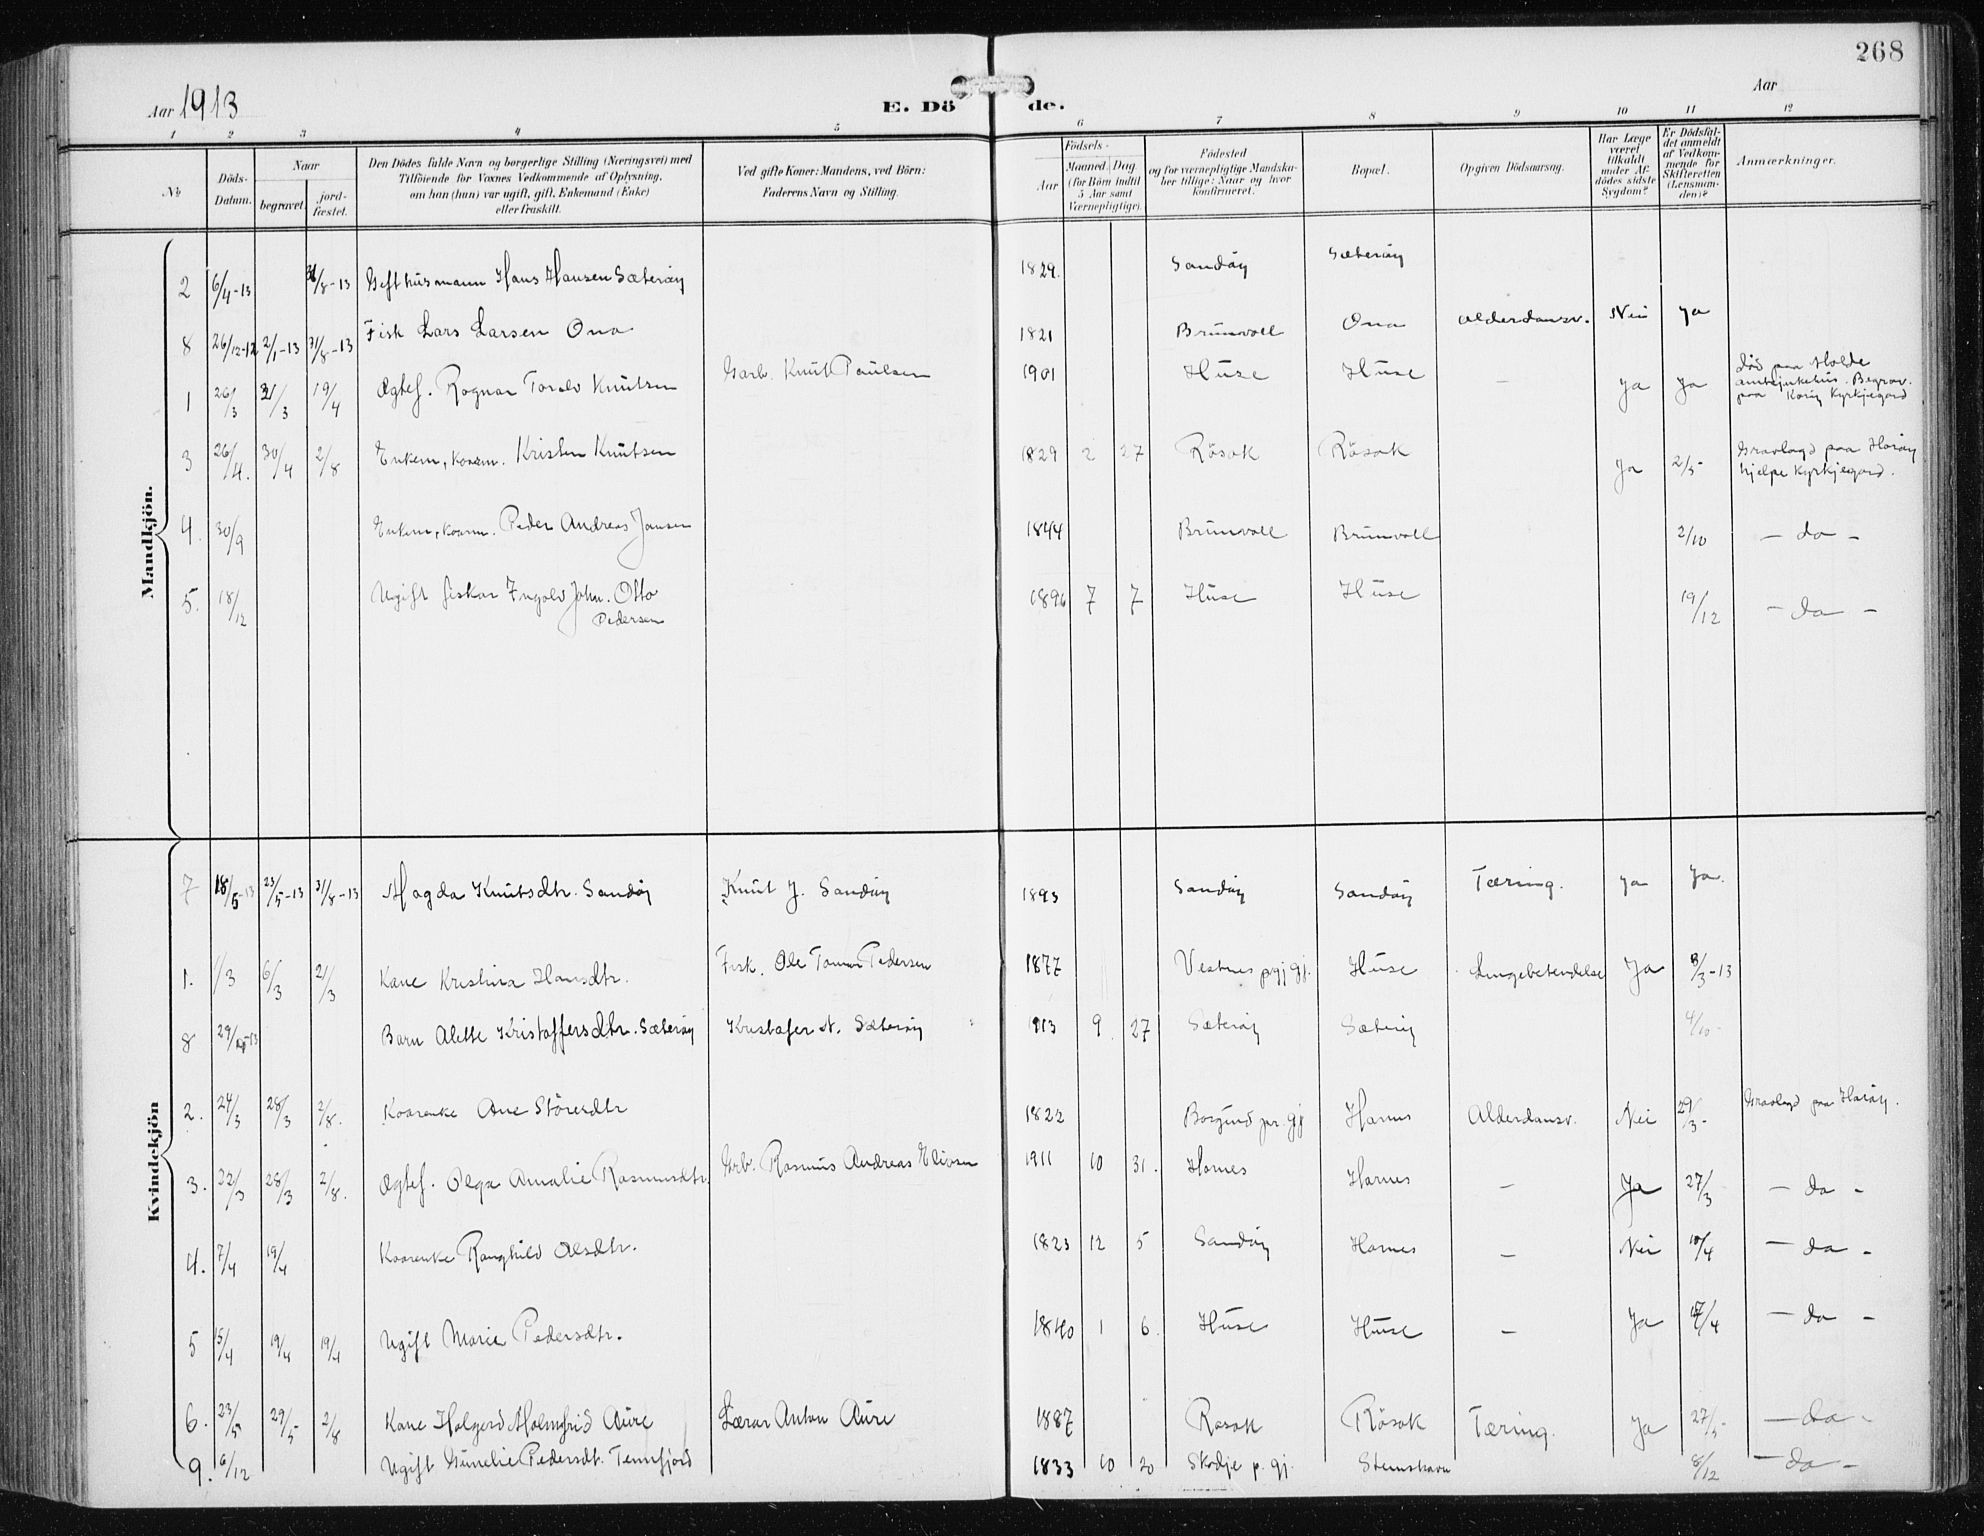 268
Aar 1913
E. Dö de.
Aar
1 2 3 4 5 6 7 8 9 10 11 12
No
Döds-Datum.
Naar
begravet.
jord-fæstet.
Den Dödes fulde Navn og borgerlige Stilling (Næringsvei) med
Tilföiende for Voxnes Vedkommende af Oplysning,
om han (hun) var ugift, gift, Enkemand (Enke)
eller fraskilt.
Ved gifte Koner: Mandens, ved Börn:
Faderens Navn og Stilling.
Födsels-
Aar
Maaned. Dag.
(for Börn indtil
5 Aar samt
Værnepligtige).
Födested
og for værnepligtige Mandska-
ber tillige: Naar og hvor
konfirmeret.
Bopæl.
Opgiven Dödsaarsag.
Har Læge
været
tilkaldt
under Af-
dödes sidste
Sygdom?
Er Dödsfal-
det anmeldt
af Vedkom-
mende for
Skifteretten
(Lensman-
den)?
Anmærkninger.
Mandkjön.
2 6/4-13 31/8-13 Gift husmann Hans Hansen Sæteröy 1829. Sandöy Sæteröy
8 26/12-12 2/1-13 31/8-13 Fisk Lars Larsen Ona 1821 Brunvoll Ona Alderdomsv. Nei Ja
1 26/3 31/3 19/4 Ægtef. Ragnar Toralv Knutsen Garb. Knut Paulsen 1901 Huse Huse – Ja Ja Död paa Molde
amtsjukehus. Begrav.
paa kyrkjegard
3 26/4. 30/4 2/8 Enkem, kaarm. Kristen Knutsen 1829 2 27 Rösok Rösok Ja 2/5 Gravlagd paa Haröy
hjelpe kyrkjegard.
4. 30/9 Enkem, kaarm. Peder Andreas Jansen 1844 Brunvoll Brunvoll 2/10 – do –
5. 18/12 Ugift fiskar Ingolv Joh. Otto
Pedersen 1896 7 7 Huse Huse 19/12 – do –
Kvindekjön
7 18/5-13 23/5-13 31/8-13 Magda Knutsdtr. Sandöy Knut J. Sandöy 1893 Sandöy Sandöy Tæring. Ja Ja.
1. 1/3 6/3 21/3 Kane Kristina Hansdtr. Fisk. Ole Pedersen 1877 Vestnes pgj gj. Huse Lungebetendelse Ja 8/3-13
8 29/-13 Barn Alette Kristoffersdtr. Sæteröy Kristofer N. Sæteröy 1913 9. 27 Sæteröy Sæteröy 4/10-
2. 24/3 28/3 2/8. Kaarenke Ane Störersdtr 1822 Borgund pr. gj Harnes Alderdomsv. Nei 29/3- Gravlagd paa Haröy.
3. 22/3 28/3 2/8. Ægtef. Olga Amalie Rasmusdtr. Grb. Rasmus Andreas Eliasen 1911 10 31. Harnes Harnes – Ja 27/3 – do –
4. 7/4 19/4 Kaarenke Ranghild Olsdtr. 1823 12 5 Sandöy Harnes – Nei 10/4 – do –
5 15/4 19/4 19/4 Ugift Marie Pedersdtr. 1840 1 6. Huse Huse – Ja 17/4 – do –
6. 23/5 29/5 2/8 Kane Holgerd Holmfrid Aure Lærar Anton Aure 1887 Rösok Rösok Tæring. Ja 27/5- – do –
9. 6/12 Ugift Gunelie Pedersdt. Tennfjord 1833 10 20 Skodje p. gj. Stenshavn 8/12 – do –